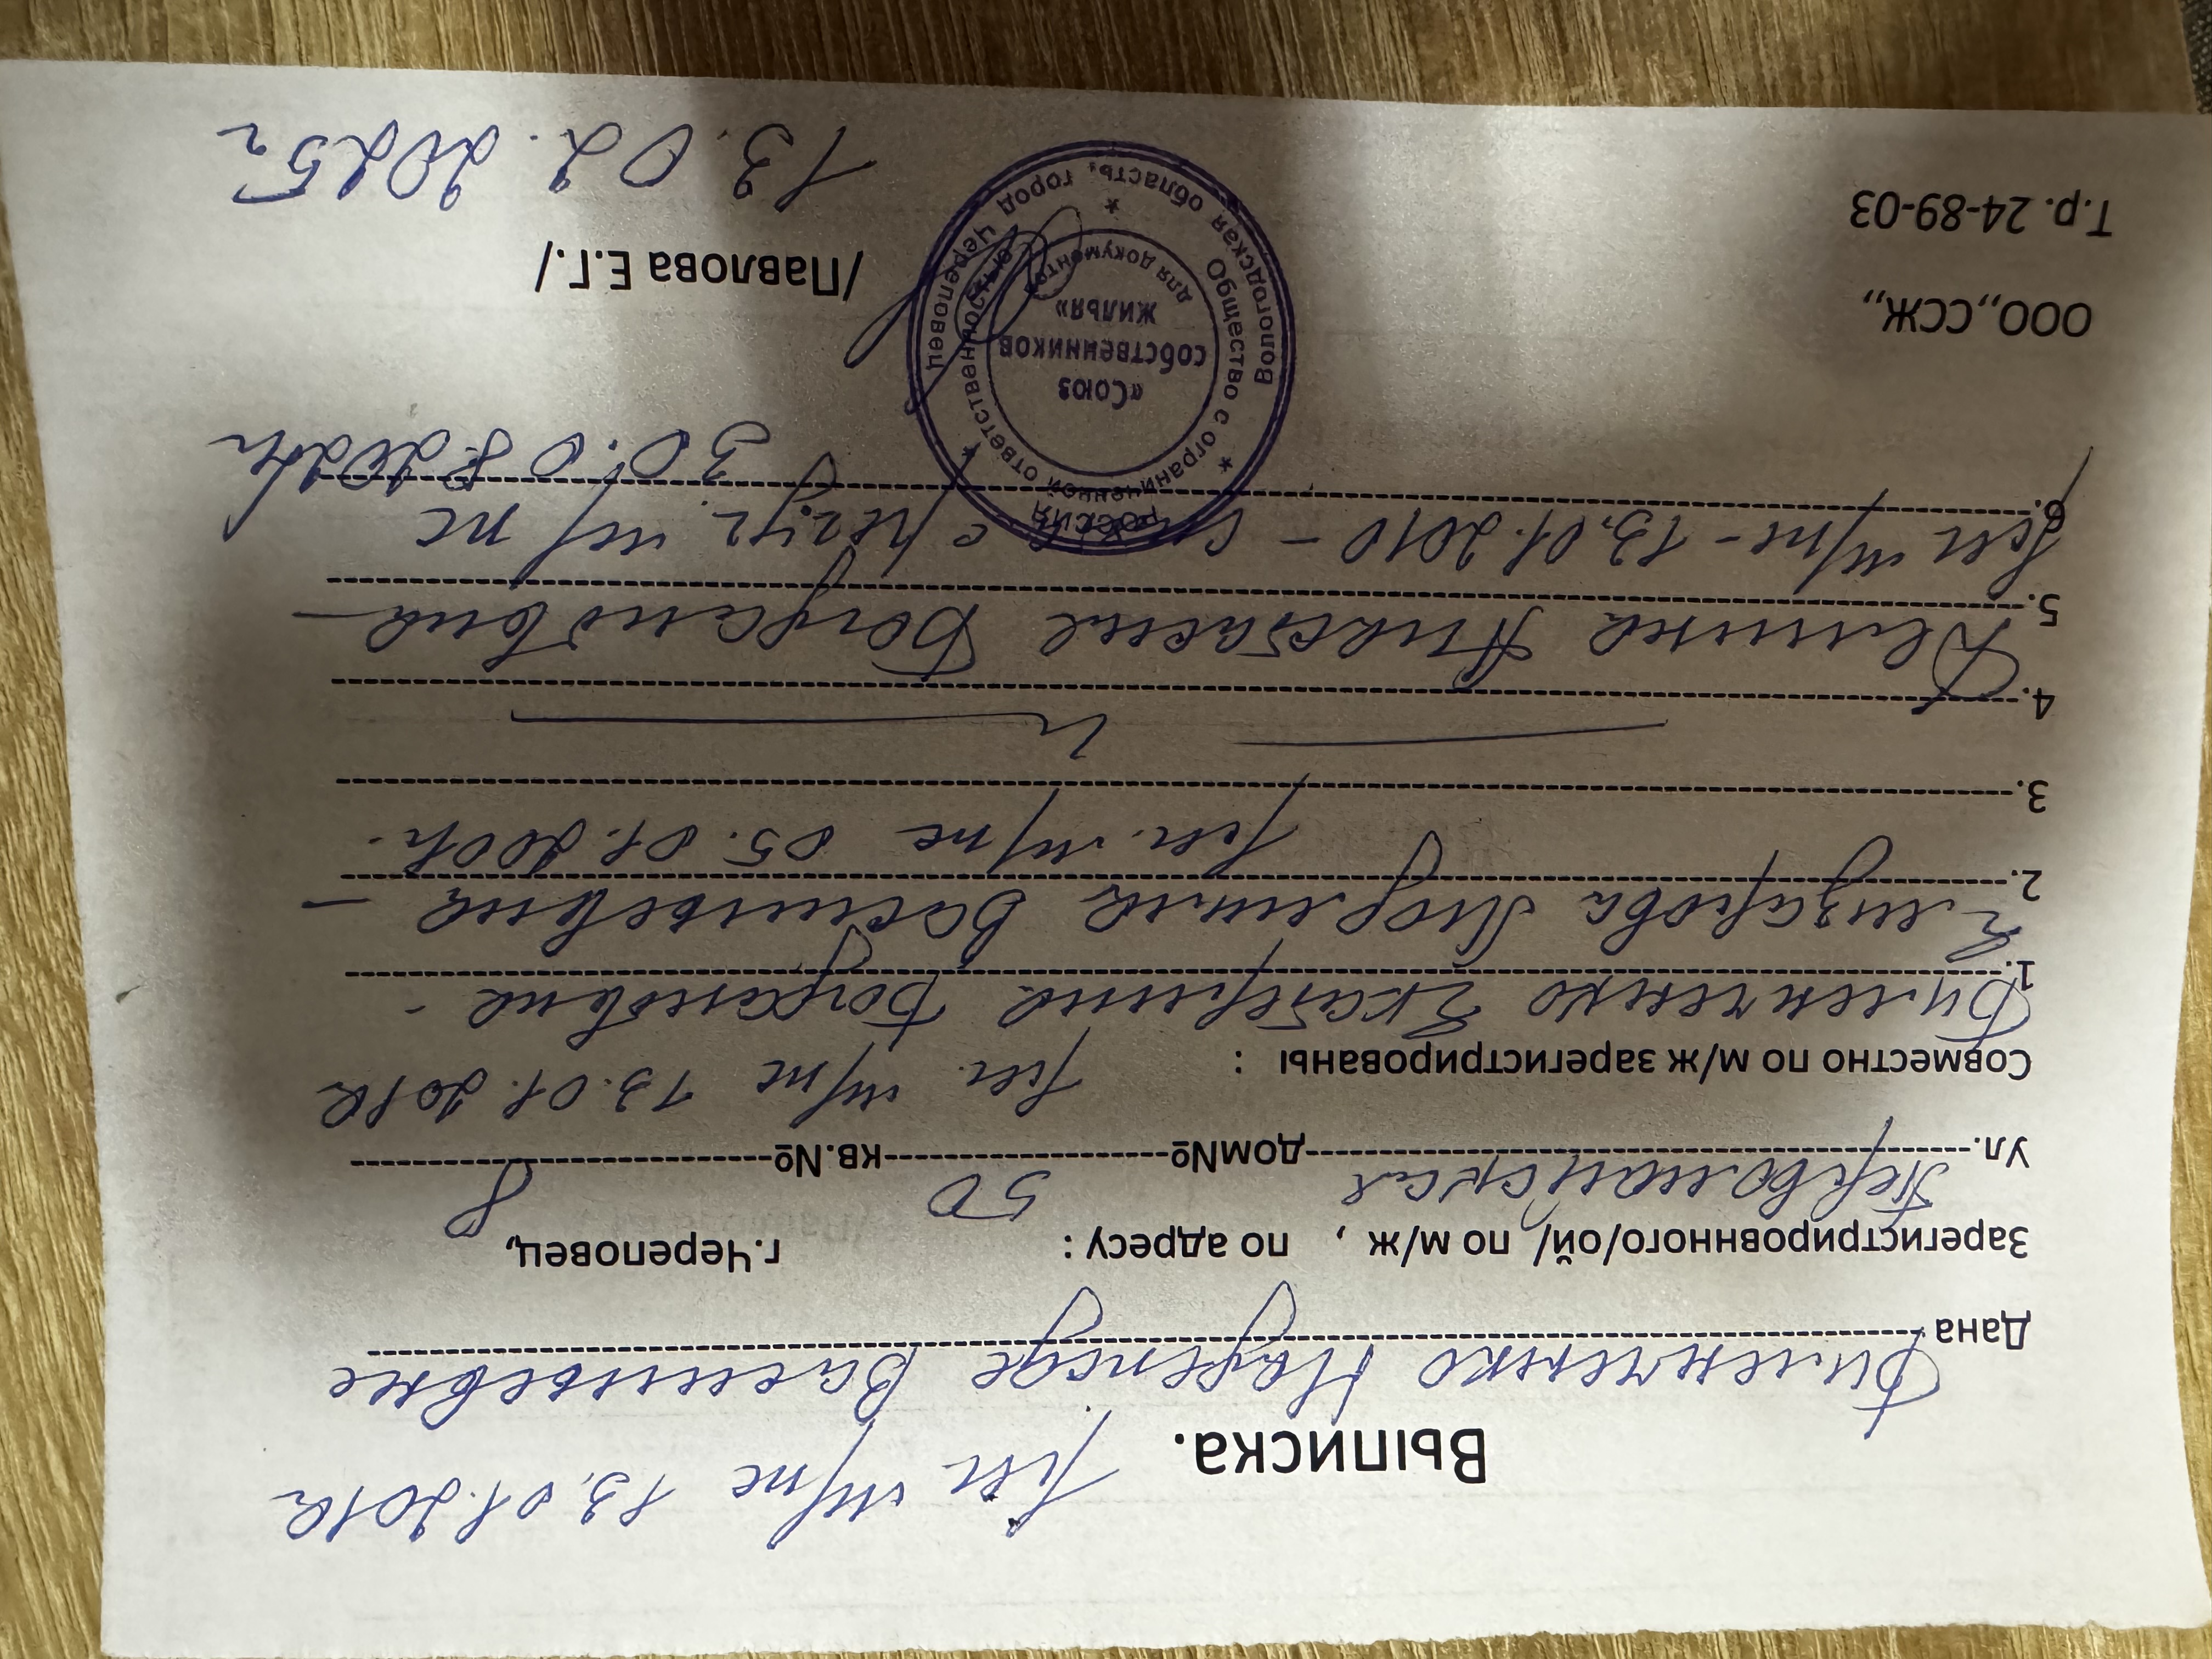 рег. м/ж 13.01.2010
Выписка.
Дана Биленченко Надежде Васильевне
Зарегистрированного/ой/ по м/ж , по адресу : г.Череповец,
Ул. Первомайская дом№ 50 кв.№ 8
рег. м/ж 13.01.2010
Совместно по м/ж зарегистрированы :
1. Биленченко Екатерина Богдановна -
2. Елизарова Людмила Васильевна -
рег. м/ж 05.01.2001г.
3.
4.
5. Демина Анастасия Богдановна -
6. рег м/ж - 13.01.2010 - с рег. уч. м/ж
30.08.2024г
ООО,,ССЖ,, /Павлова Е.Г./
Т.р. 24-89-03 13.02.2025г
РОССИЯ
Вологодская область, город Череповец
Общество с ограниченной ответственностью
«Союз
собственников
жилья»
для документов